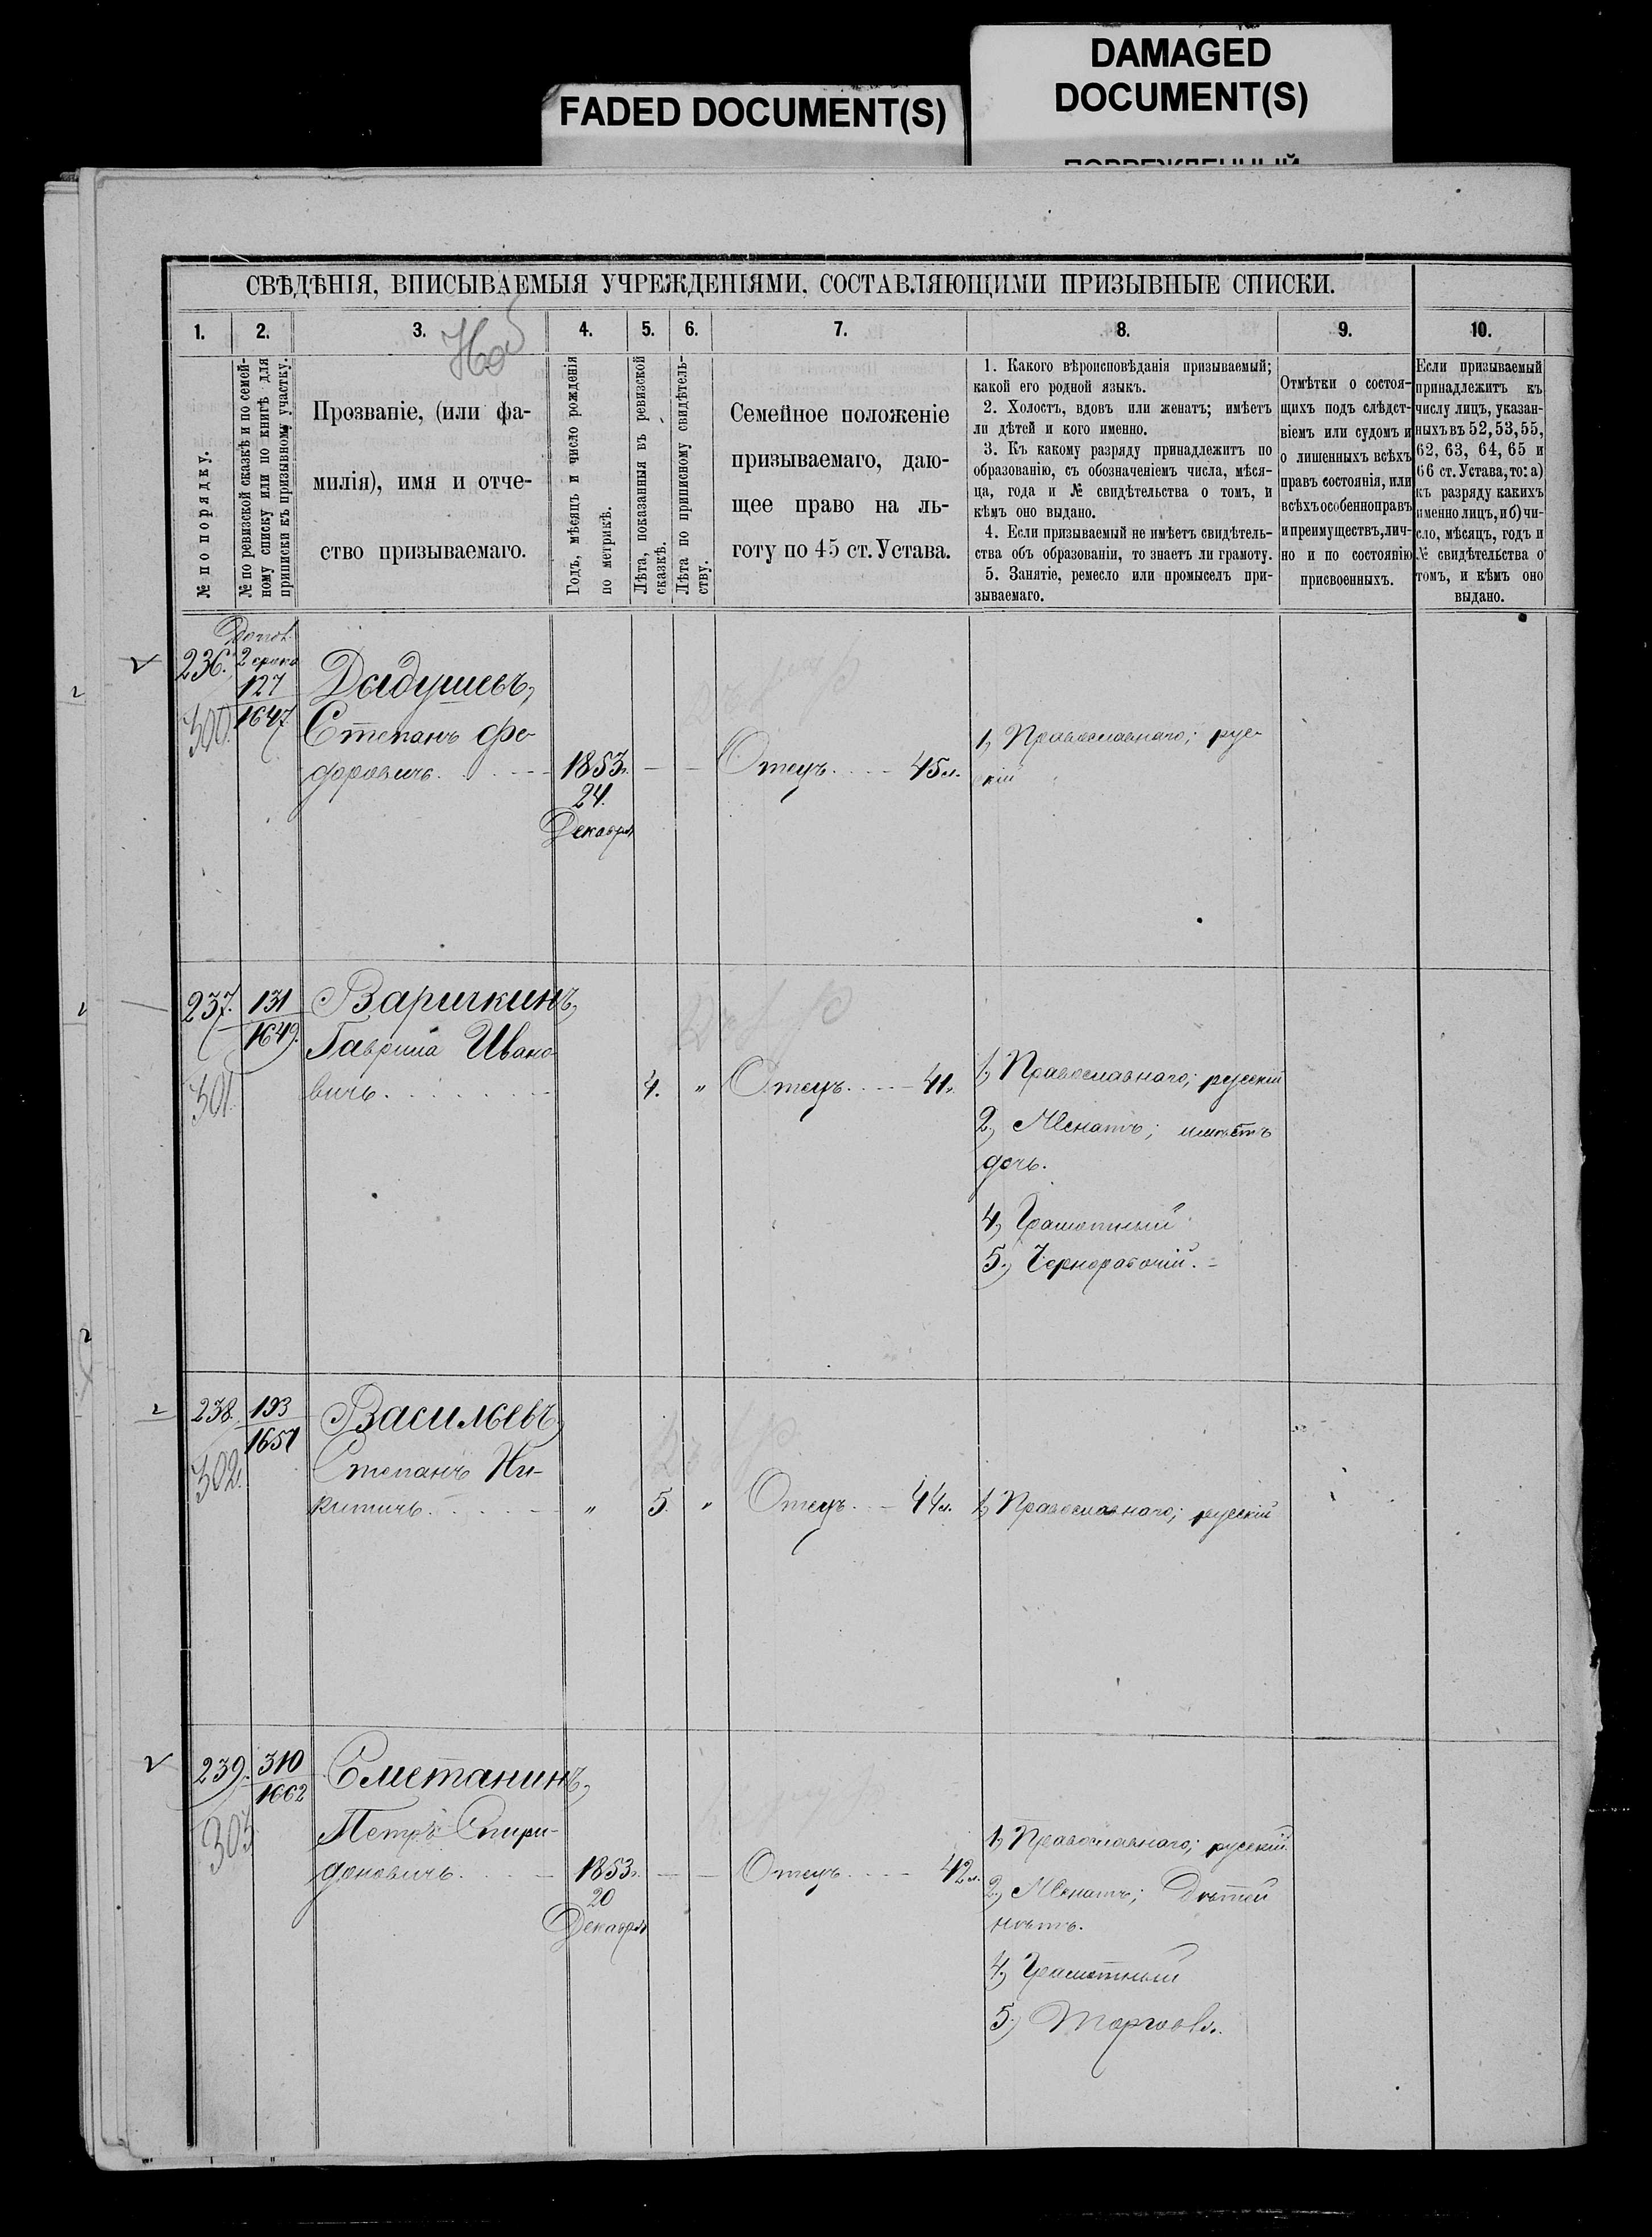 FADED DOCUMENT(S)
DAMAGED
DOCUMENT(S)
СВѢДѢНІЯ, ВПИСЫВАЕМЫЯ УЧРЕЖДЕНІЯМИ, СОСТАВЛЯЮЩИМИ ПРИЗЫВНЫЕ СПИСКИ.
1. 2. 3. 4. 5. 6. 7. 8. 9. 10.
№ по порядку.
№ по ревизской сказкѣ и по семей-
ному списку или по книгѣ для
приписки къ призывному участку.
Прозваніе, (или фа-
милія), имя и отче-
ство призываемаго.
Годъ, мѣсяцъ и число рожденія
по метрикѣ.
Лѣта, показанныя въ ревизской
сказкѣ.
Лѣта по приписному свидѣтель-
ству.
Семейное положеніе
призываемаго, даю-
щее право на ль-
готу по 45 ст. Устава.
1. Какого вѣроисповѣданія призываемый;
какой его родной языкъ.
2. Холостъ, вдовъ или женатъ; имѣетъ
ли дѣтей и кого именно.
3. Къ какому разряду принадлежитъ по
образованію, съ обозначеніемъ числа, мѣся-
ца, года и № свидѣтельства о томъ, и
кѣмъ оно выдано.
4. Если призываемый не имѣетъ свидѣтель-
ства объ образованіи, то знаетъ ли грамоту.
5. Занятіе, ремесло или промыселъ при-
зываемаго.
Отмѣтки о состоя-
щихъ подъ слѣдст-
віемъ или судомъ и
о лишенныхъ всѣхъ
правъ состоянія, или
всѣхъ особенно правъ
и преимуществъ, лич-
но и по состоянію
присвоенныхъ.
Если призываемый
принадлежитъ къ
числу лицъ, указан-
ныхъ въ 52, 53, 55,
62, 63, 64, 65 и
66 ст. Устава, то: а)
къ разряду какихъ
именно лицъ, и б) чи-
сло, мѣсяцъ, годъ и
№ свидѣтельства о
томъ, и кѣмъ оно
выдано.
236.
127
1647
300.
Дадушевъ,
Степанъ Фе-
доровичъ
1853г.
24.
Декабря
Отецъ 45л.
1, Православнаго; рус-
скій
237. 131
1649.
301.
Варичкинъ,
Гаврила Ивано-
вичъ 4. " Отецъ 41л.
1, Православнаго; русскій
2, Женатъ; имѣетъ
дочь.
4, Грамотный
5, Чернорабочій.
238. 193
1651
302.
Васильевъ,
Степанъ Ни-
китичъ " 5. " Отецъ 44л. 1, Православнаго; русскій
239. 310
1662
303
Сметанинъ,
Петръ Спири-
доновичъ 1853г. Отецъ 42л.
20
Декабря
1, Православнаго; русскій
2, Женатъ; Дѣтей
нѣтъ.
4, Грамотный
5,